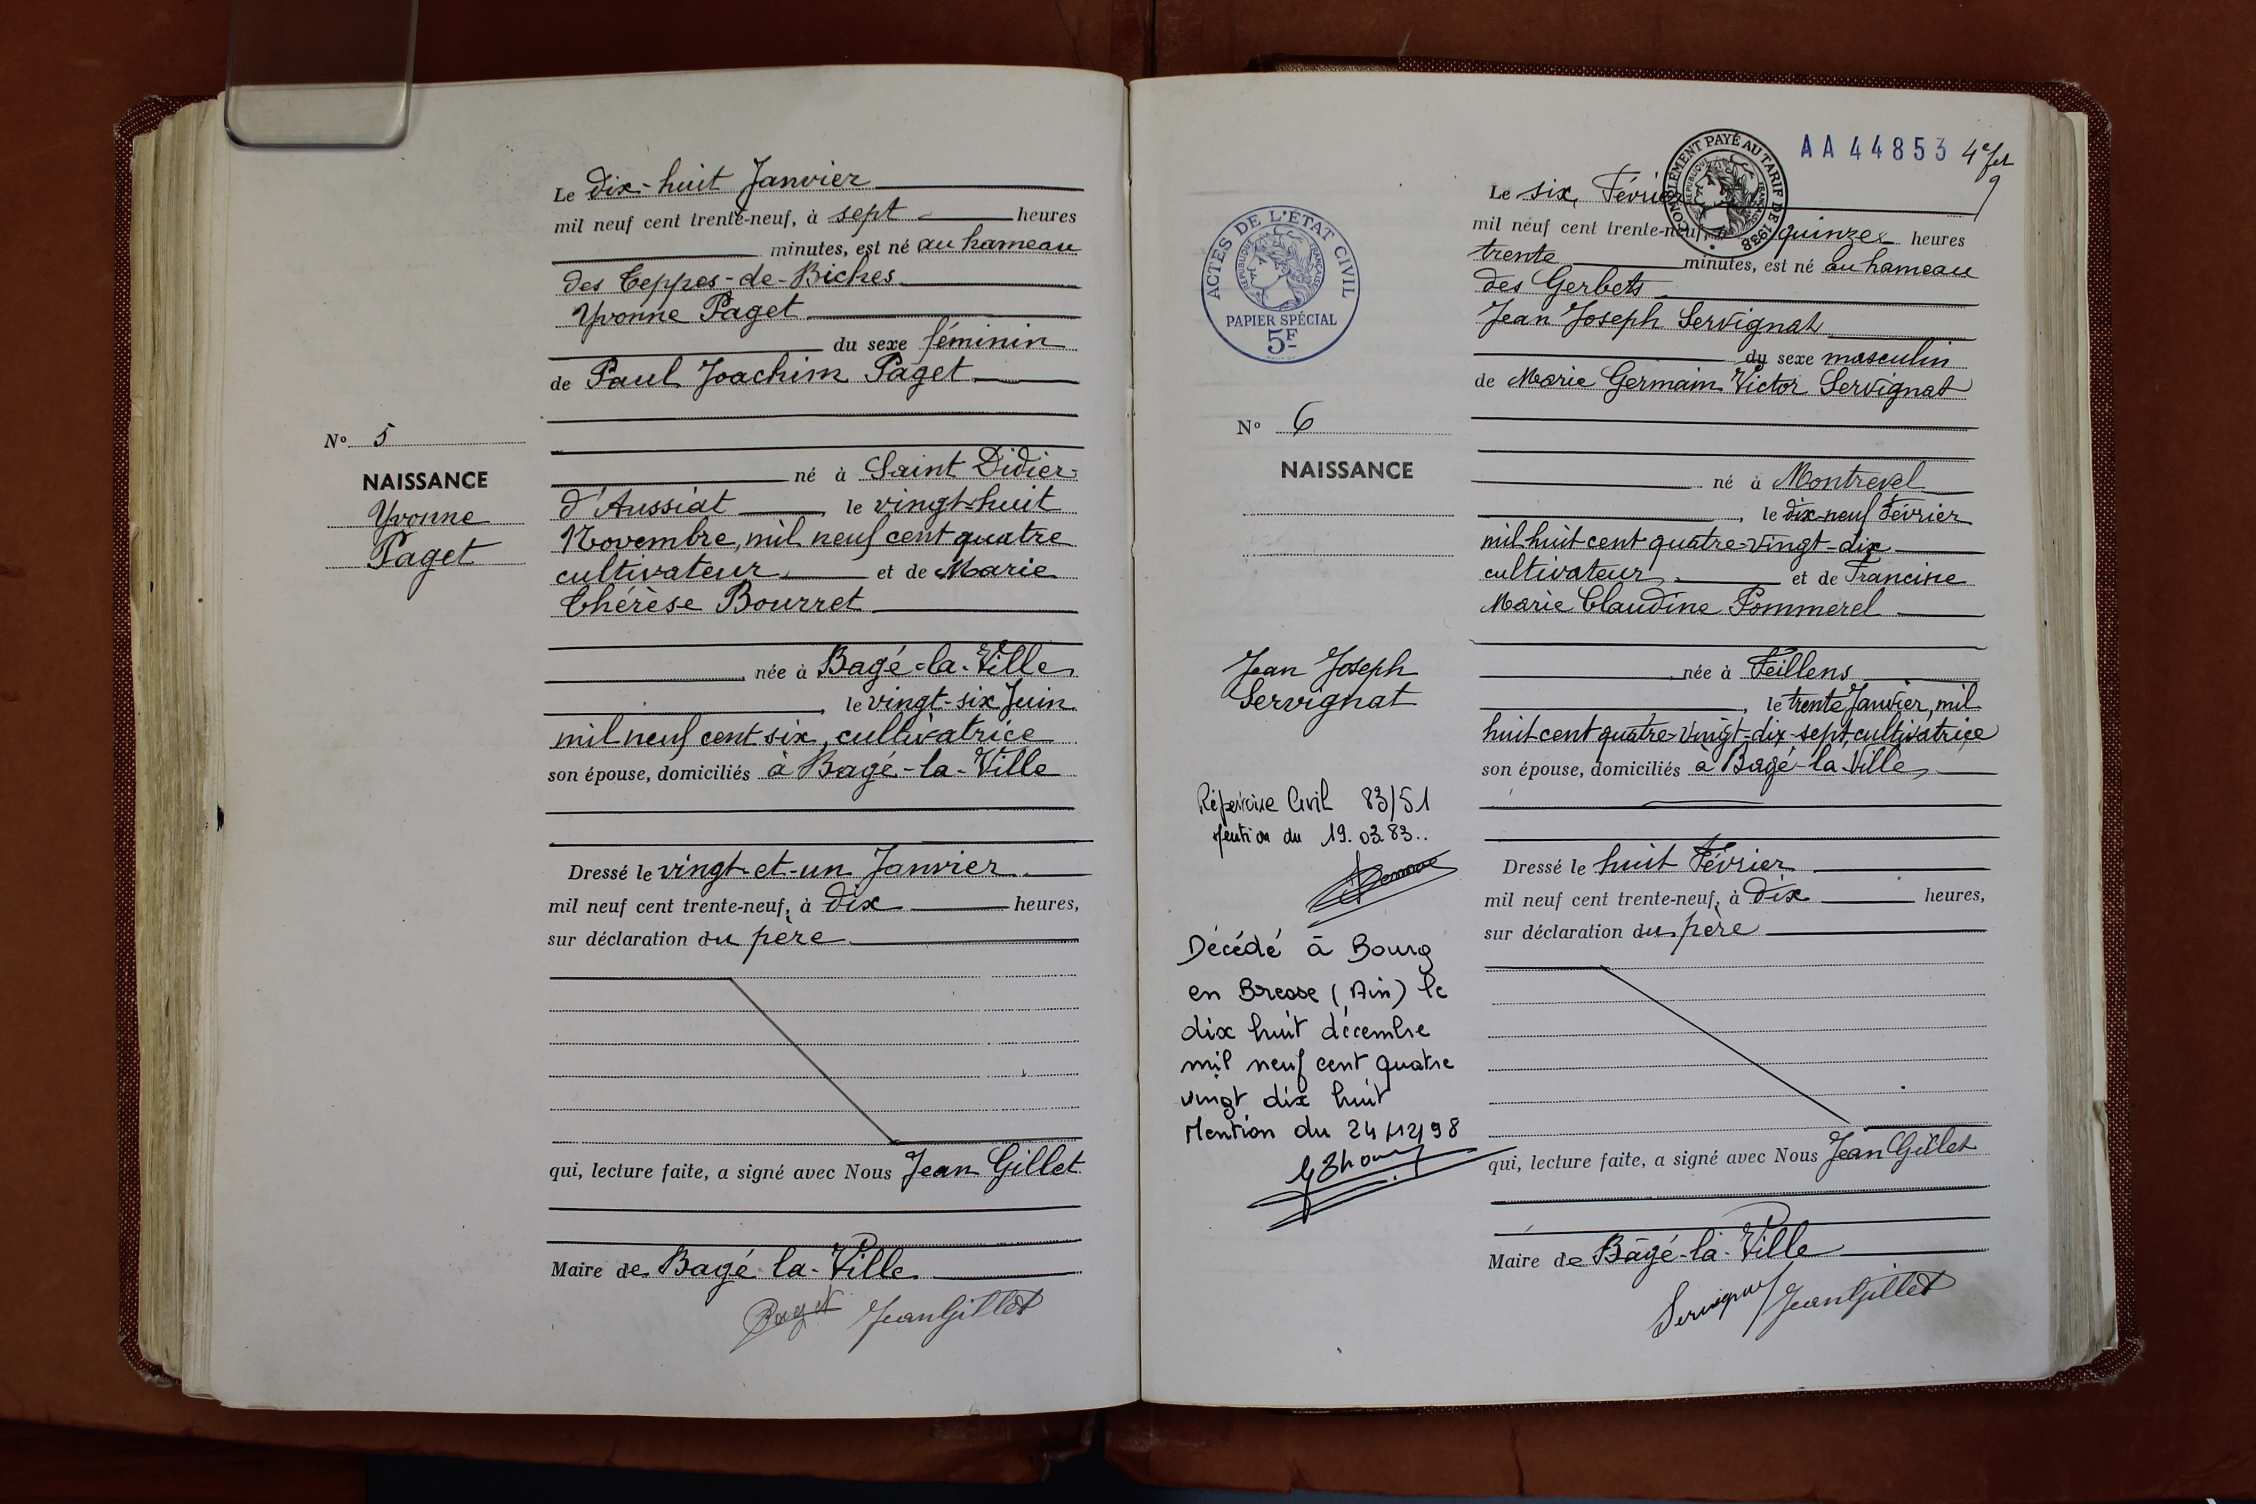 Le dix-huit Janvier
mil neuf cent trente-neuf, à sept heures
minutes, est né au hameau
des Teppes-de-Biches
Yvonne Paget
du sexe féminin
de Paul Joachim Paget
né à Saint Didier-
d'Aussiat, le vingt-huit
Novembre, mil neuf cent quatre
cultivateur et de Marie
Thérèse Bourret
née à Bagé-la-Ville
, le vingt-six Juin
mil neuf cent six, cultivatrice
son épouse, domiciliés à Bagé-la-Ville
Dressé le vingt-et-un Janvier
mil neuf cent trente-neuf, à dix heures,
sur déclaration du père
qui, lecture faite, a signé avec Nous Jean Gillet
Maire de Bagé-la-Ville
Paget JeanGillet
No 5
NAISSANCE
Yvonne
Paget
AA 44853
COMPLEMENT PAYÉ AU TARIF DE 1938
RÉPUBLIQUE FRANÇAISE
Le six Février
mil neuf cent trente-neuf, quinze heures
trente minutes, est né au hameau
des Gerbets
Jean Joseph Servignat
du sexe masculin
de Marie Germain Victor Servignat
né à Montrevel
, le dix-neuf Février
mil huit cent quatre-vingt-dix
cultivateur et de Francine
Marie Claudine Pommerel
née à Feillens
, le trente Janvier, mil
huit cent quatre-vingt-dix-sept, cultivatrice
son épouse, domiciliés à Bagé-la-Ville
Dressé le huit Février
mil neuf cent trente-neuf, à dix heures,
sur déclaration du père
qui, lecture faite, a signé avec Nous Jean Gillet
Maire de Bagé-la-Ville
Servignat JeanGillet
ACTES DE L'ÉTAT CIVIL
RÉPUBLIQUE FRANÇAISE
PAPIER SPÉCIAL
5F
No 6
NAISSANCE
Jean Joseph
Servignat
Répertoire Civil 83/51
Mention du 19.03.83..
Décédé à Bourg
en Bresse (Ain) le
dix huit décembre
mil neuf cent quatre
vingt dix huit
Mention du 24/12/98